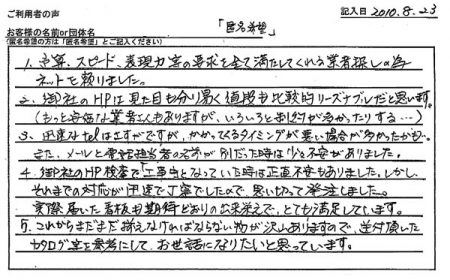 ご利用者の声
記入日 2010.8.23
お客様の名前or団体名 「匿名希望」
(匿名希望の方は「匿名希望」とご記入ください)
1. 予算、スピード、表現力等の要求を全て満たしてくれる業者探しの為
ネットを頼りました。
2. 御社のHPは見た目も分り易く値段も比較的リーズナブルだと思います。
(もっと安価な業者さんもありますが、いろいろと制約が多かったりする…)
3. 迅速なtelはさすがですが、かかってくるタイミングが悪い場合が多かったかも。
また、メールと電話担当者の名前が別だった時は少々不安がありました。
4. 御社のHP検索で「工事中」となっていた時は正直不安もありました。しかし、
それまでの対応が迅速で丁寧でしたので、思い切って発注しました。
実際届いた看板も期待どおりの出来栄えで、とても満足しています。
5. これからまだまだ揃えなければならない物が沢山ありますので、送付頂いた
カタログ等を参考にして、お世話になりたいと思っています。